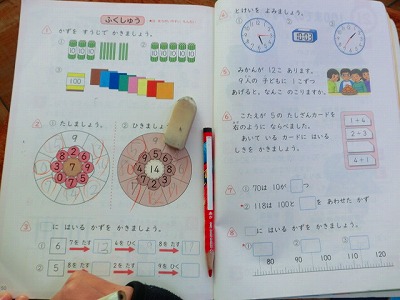 ふくしゅう
1 かずを すうじで かきましょう。
①
②
10 10 10
10 10 10 10 10
③
100
2 ① たしましょう。
9
8 2 6
3 7 0
② ひきましょう。
9
9 5 6
4 14 8
7 2 3
3 □に はいる かずを かきましょう。
① 6 7を たす 4を ひく 8を たす
② 5 8を たす 2を たす 9を ひく
4 とけいを よみましょう。
10:03
5 みかんが 12こ あります。
9人の 子どもに 1こずつ
あげると、なんこ のこりますか。
6 こたえが 5の たしざんカードを
右のように ならべました。
あいて いる カードに はいる
しきを かきましょう。
1+4
2+3
4+1
7 ① 70は 10が □つ
② 118は 100と □を あわせた かず
8 □に はいる かずを かきましょう。
① ② ③
80 90 100 110 120